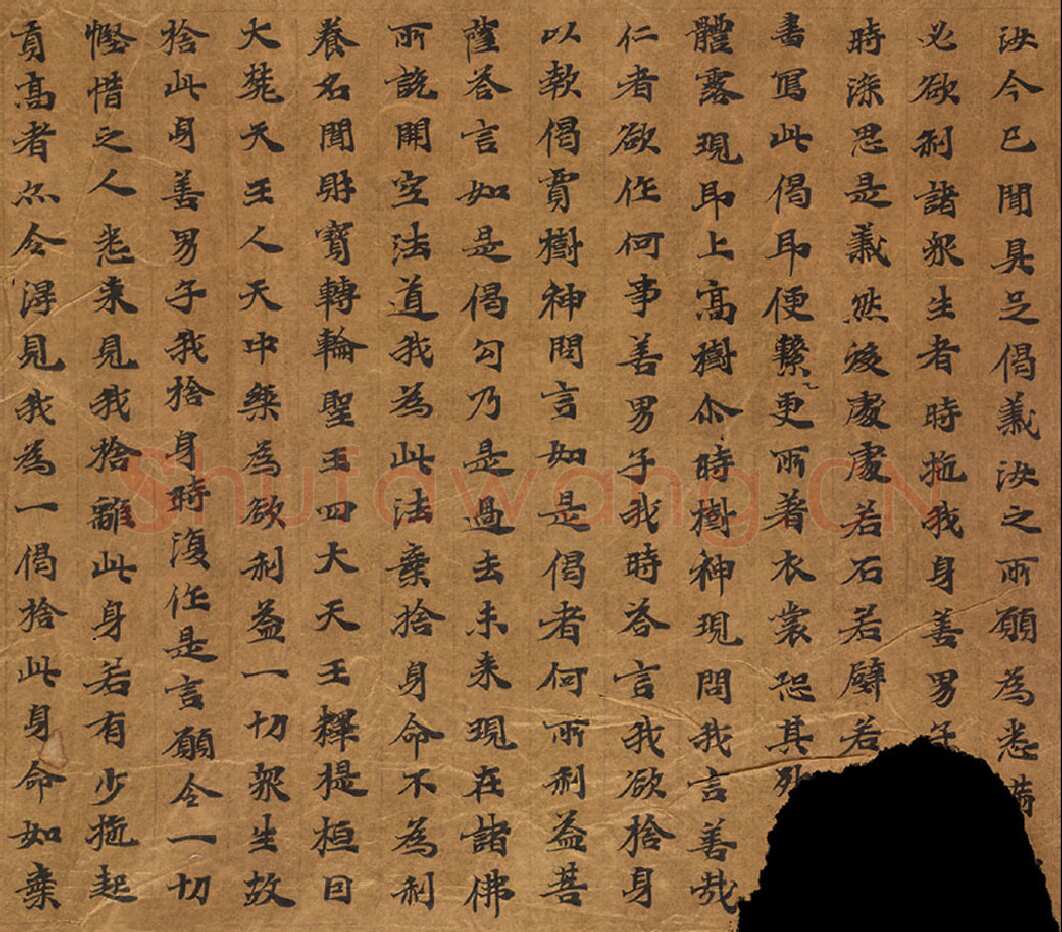 汝今已聞具足偈義汝之所願為悉滿
必欲利諸衆生者時施我身善男子
時深思是義然後處處若石若壁若
書寫此偈即便繫更所著衣裳恐其死
體露現即上高樹尒時樹神現問我言善哉
仁者欲作何事善男子我時荅言我欲捨身
以報偈賈樹神問言如是偈者何所利益菩
薩荅言如是偈句乃是過去未來現在諸佛
所說開空法道我為此法棄捨身命不為利
養名聞財寶轉輪聖王四大天王釋提桓因
大梵天王人天中樂為欲利益一切衆生故
捨此身善男子我捨身時復作是言願令一切
慳惜之人悉來見我捨離此身若有少施起
貢高者亦令得見我為一偈捨此身命如棄
Shufawang.CN